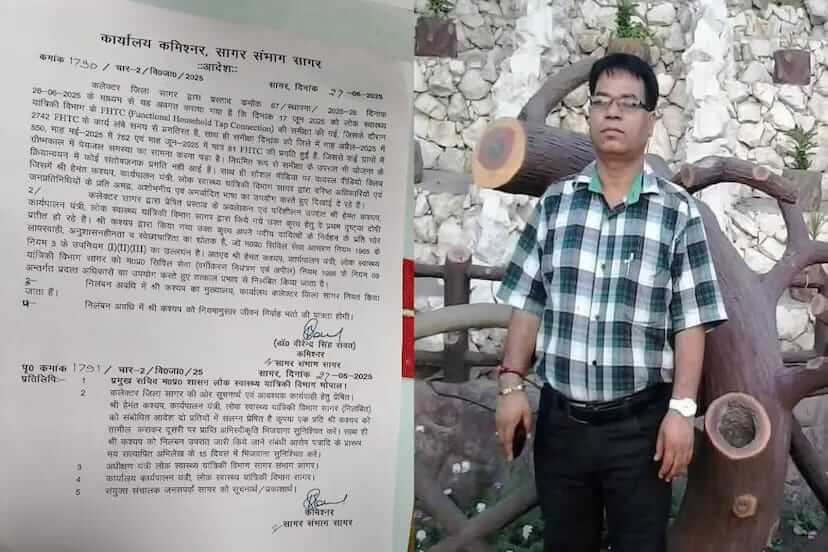 कार्यालय कमिश्नर, सागर संभाग सागर
::आदेश::
क्रमांक 1790 / चार-2/वि0जा0/2025 सागर, दिनांक 27-06-2025
कलेक्टर जिला सागर द्वारा प्रस्ताव क्रमांक 67/स्थापना/ 2025-26 दिनांक
26-06-2025 के माध्यम से यह अवगत कराया गया है कि दिनांक 17 जून 2025 को लोक स्वास्थ्य
यांत्रिकी विभाग के FHTC (Functional Household Tap Connection) की समीक्षा की गई, जिसमें
2742 FHTC के कार्य लंबे समय से प्रगतिरत है, साथ ही समीक्षा दिनांक को जिले में माह अप्रैल-2025 में
550, माह मई-2025 में 762 एवं माह जून-2025 में मात्र 81 FHTC की प्रगति हुई है, जिससे कई ग्रामों में
ग्रीष्मकाल में पेयजल समस्या का सामना करना पड़ा है। नियमित रूप से समीक्षा के उपरान्त भी योजना के
क्रियान्वयन में कोई संतोषजनक प्रगति नहीं आई है। साथ ही सोशल मीडिया पर वायरल वीडियो क्लिप
जिसमें श्री हेमंत कश्यप, कार्यपालन यंत्री, लोक स्वास्थ्य यांत्रिकी विभाग सागर द्वारा वरिष्ठ अधिकारियों एवं
जनप्रतिनिधियों के प्रति अभद्र, अशोभनीय एवं अमर्यादित भाषा का उपयोग करते हुए दिखाई दे रहे हैं।
2/ कलेक्टर सागर द्वारा प्रेषित प्रस्ताव के अवलोकन एवं परिशीलन उपरांत श्री हेमंत कश्यप,
कार्यपालन यंत्री, लोक स्वास्थ्य यांत्रिकी विभाग सागर द्वारा किये गये उक्त कृत्य हेतु वे प्रथम दृष्टया दोषी
प्रतीत हो रहे हैं। श्री कश्यप द्वारा किया गया उक्त कृत्य अपने पदीय दायित्वों के निर्वहन के प्रति घोर
लापरवाही, अनुशासनहीनता व स्वेच्छाचारिता का द्योतक है, जो म0प्र0 सिविल सेवा आचरण नियम 1965 के
नियम 3 के उपनियम (I)(II)(III) का उल्लंघन है। अतएव श्री हेमंत कश्यप, कार्यपालन यंत्री, लोक स्वास्थ्य
यांत्रिकी विभाग सागर को म0प्र0 सिविल सेवा (वर्गीकरण नियंत्रण एवं अपील) नियम 1966 के नियम 09
अन्तर्गत प्रदत्त अधिकारों का उपयोग करते हुए तत्काल प्रभाव से निलंबित किया जाता है।
3- निलंबन अवधि में श्री कश्यप का मुख्यालय, कार्यालय कलेक्टर जिला सागर नियत किया
जाता है।
4 निलंबन अवधि में श्री कश्यप को नियमानुसार जीवन निर्वाह भत्ते की पात्रता होगी।
(डॉ0 वीरेन्द्र सिंह रावत)
कमिश्नर
सागर संभाग सागर
पृ0 क्रमांक 1791 / चार-2/वि0जा0/25 सागर, दिनांक 27-06-2025
प्रतिलिपिः-
1 प्रमुख सचिव म0प्र0 शासन लोक स्वास्थ्य यांत्रिकी विभाग भोपाल।
2 कलेक्टर जिला सागर की ओर सूचनार्थ एवं आवश्यक कार्यवाही हेतु प्रेषित।
श्री हेमंत कश्यप, कार्यपालन यंत्री, लोक स्वास्थ्य यांत्रिकी विभाग सागर (निलंबित)
को संबोधित आदेश दो प्रतियों में संलग्न प्रेषित है कृपया एक प्रति श्री कश्यप को
तामील कराकर दूसरी पर प्राप्ति अभिस्वीकृति भिजवाना सुनिश्चित करें। साथ ही
श्री कश्यप को निलंबन उपरांत जारी किये जाने संबंधी आरोप पत्रादि के प्रारूप
मय सत्यापित अभिलेख के 15 दिवस में भिजवाना सुनिश्चित करें।
3 अधीक्षण यंत्री लोक स्वास्थ्य यांत्रिकी विभाग सागर संभाग सागर।
4 कार्यालय कार्यपालन यंत्री, लोक स्वास्थ्य यांत्रिकी विभाग सागर।
5 संयुक्त संचालक जनसंपर्क सागर को सूचनार्थ/प्रकाशनार्थ।
कमिश्नर
सागर संभाग सागर